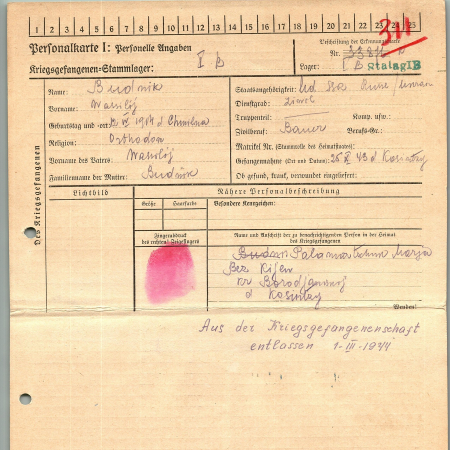 1 2 3 4 5 6 7 8 9 10 11 12 13 14 15 16 17 18 19 20 21 22 23 24 25
Personalkarte I: Personelle Angaben
Kriegsgefangenen-Stammlager: I B
Beschriftung der Erkennungsmarke
Nr.
Lager: I B Stalag IB
311
Des Kriegsgefangenen
Name: Budnik
Vorname: Wassilij
Geburtstag und -ort: 1914 d Chmelna
Religion: Orthodox
Vorname des Vaters: Wassilij
Familienname der Mutter: Budnik
Staatsangehörigkeit:
Dienstgrad: Zivil
Truppenteil: Komp. usw.:
Zivilberuf: Bauer Berufs-Gr.:
Matrikel Nr. (Stammrolle des Heimatstaates):
Gefangennahme (Ort und Datum): 43 d
Ob gesund, krank, verwundet eingeliefert:
Lichtbild
Nähere Personalbeschreibung
Größe Haarfarbe Besondere Kennzeichen:
Fingerabdruck
des rechten Zeigefingers
Name und Anschrift der zu benachrichtigenden Person in der Heimat
des Kriegsgefangenen
Marja
Bez Kijew
d
Wenden!
Aus der Kriegsgefangenenschaft
entlassen 1-III-1944